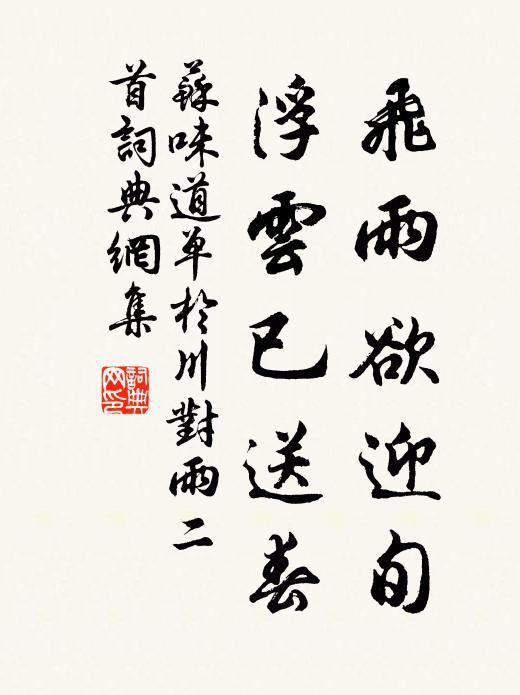 飛雨欲迎旬
浮雲已送春
蘇味道單於川對雨二
首詞典網集
詞典
网印